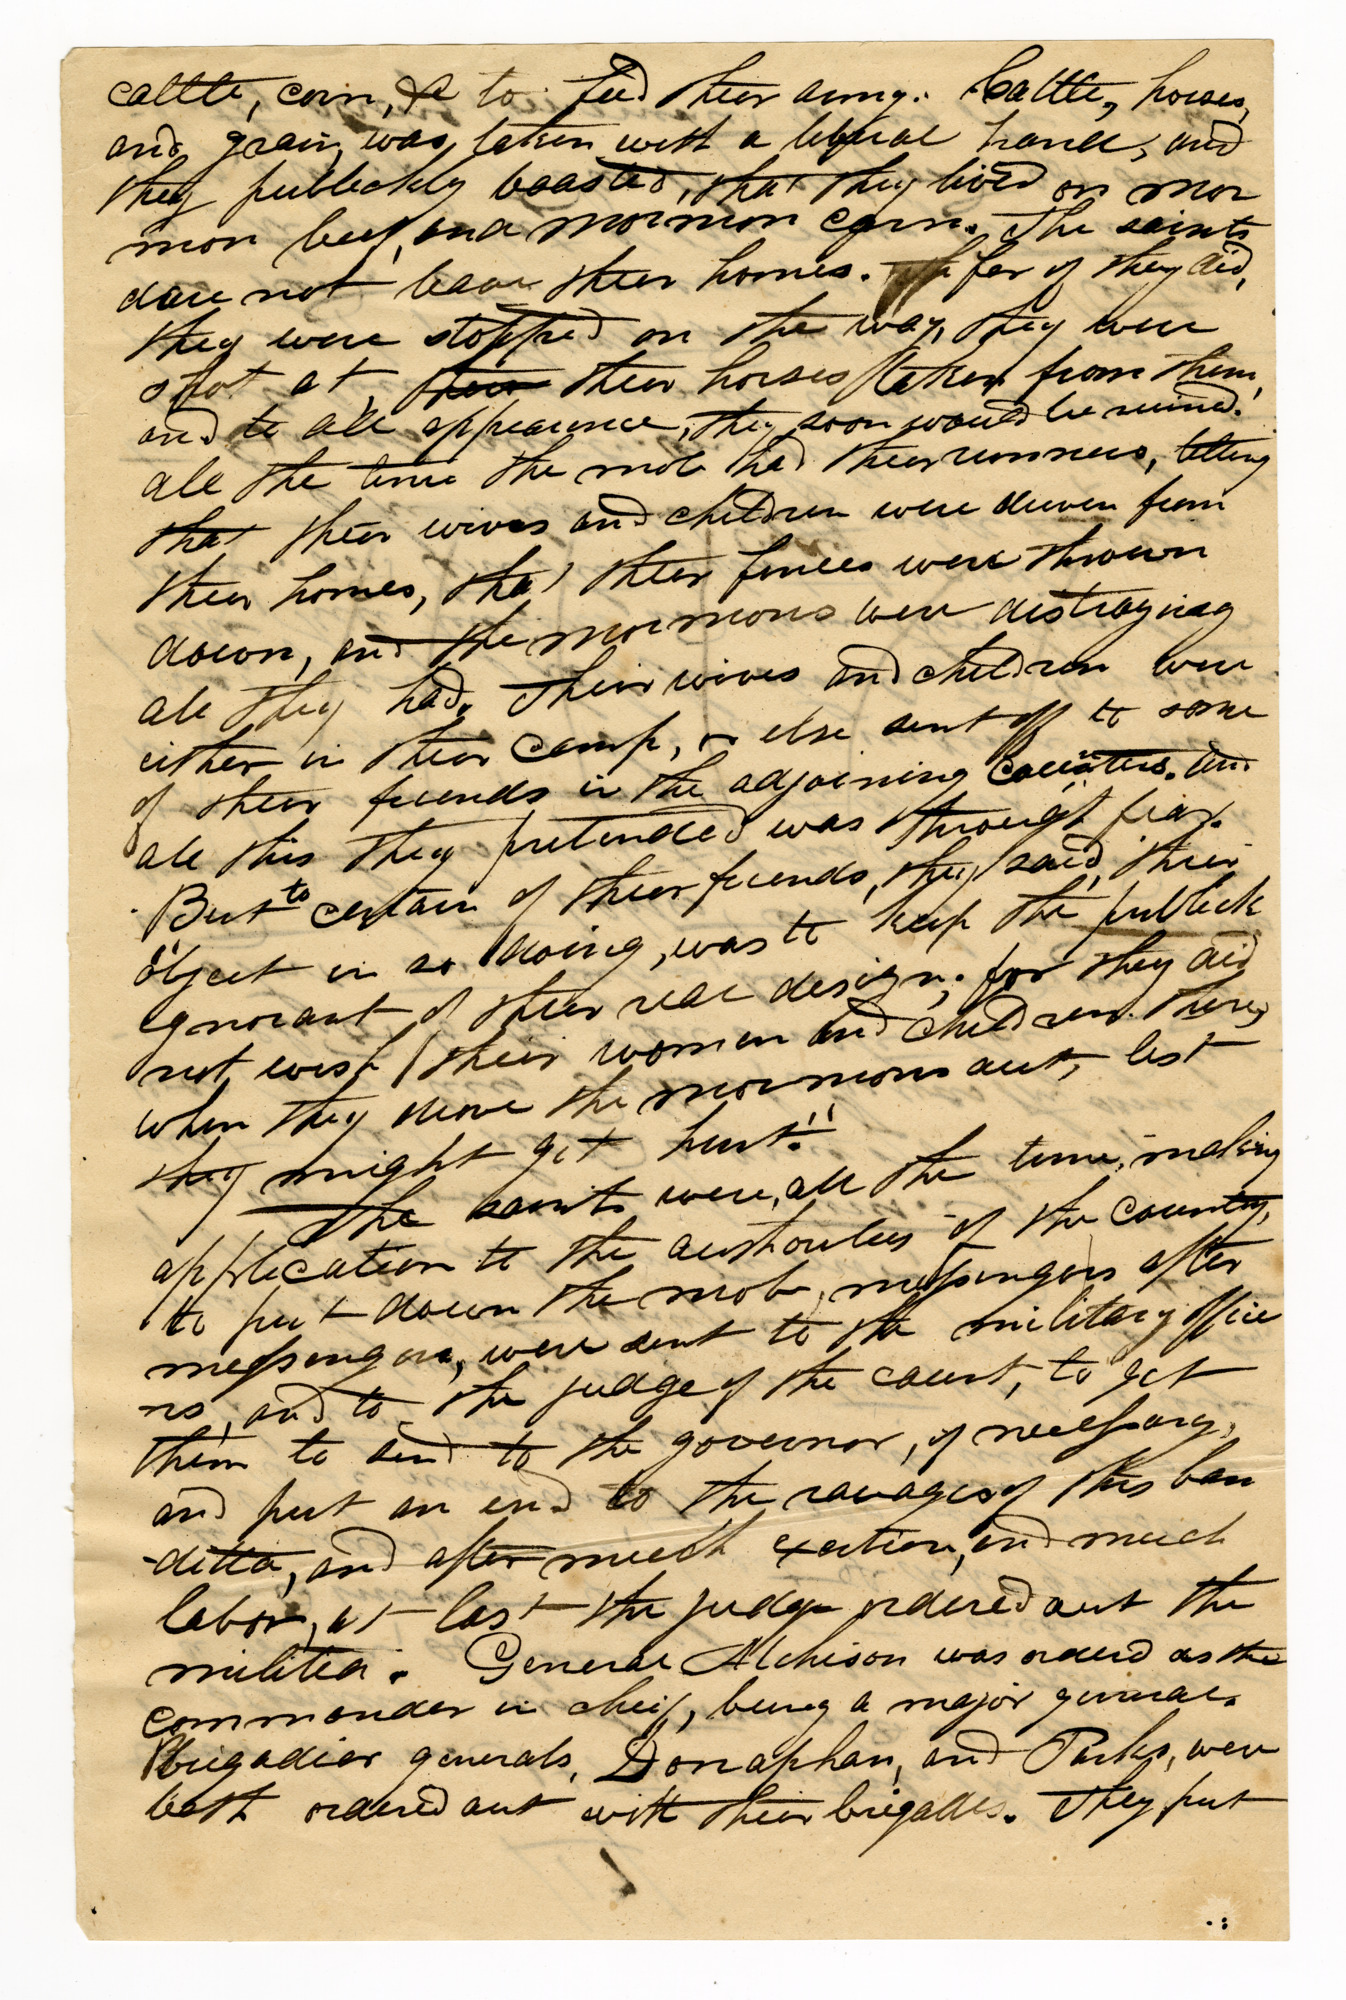 cattle, corn, &c to feed their army. Cattle, horses,
and grain, was, taken with a liberal hand, and
they publickly boasted, that they lived on mor
mon beef, and mormon corn. The saints
dare not leave their homes. for if they did,
they were stopped on the way, they were
shot at, their horses taken from them,
and to all appearence, they soon would be ruined.
all the time the mob had their runners, telling
that their wives and children were driven from
their homes, that their fences were thrown
down, and the mormons were distroying
all they had. Their wives and children were
either in their camp, or else sent off to some
of their friends in the adjoining counties. and
all this they pretended was through fear.
But to certain of their friends, they said, "their
object in so doing, was to keep the publick
ignorant of their real design; for they did
not wish their women and children there,
when they drove the mormons out, lest
they might get hurt."
The saints were, all the time, making
application to the authorities of the country,
to put down the mob, messengers after
messengers, were sent to the military office
rs, and to the judge of the court, to get
them to send to the governor, if necessary,
and put an end to the ravages of this ban
ditta, and after much exertion, and much
labor, at last the judge ordered out the
militia. General Atchison was ordered as the
commander in cheif, being a major general.
Brigadier generals, Donaphan, and Parks, were
both ordered out with their brigades. They put